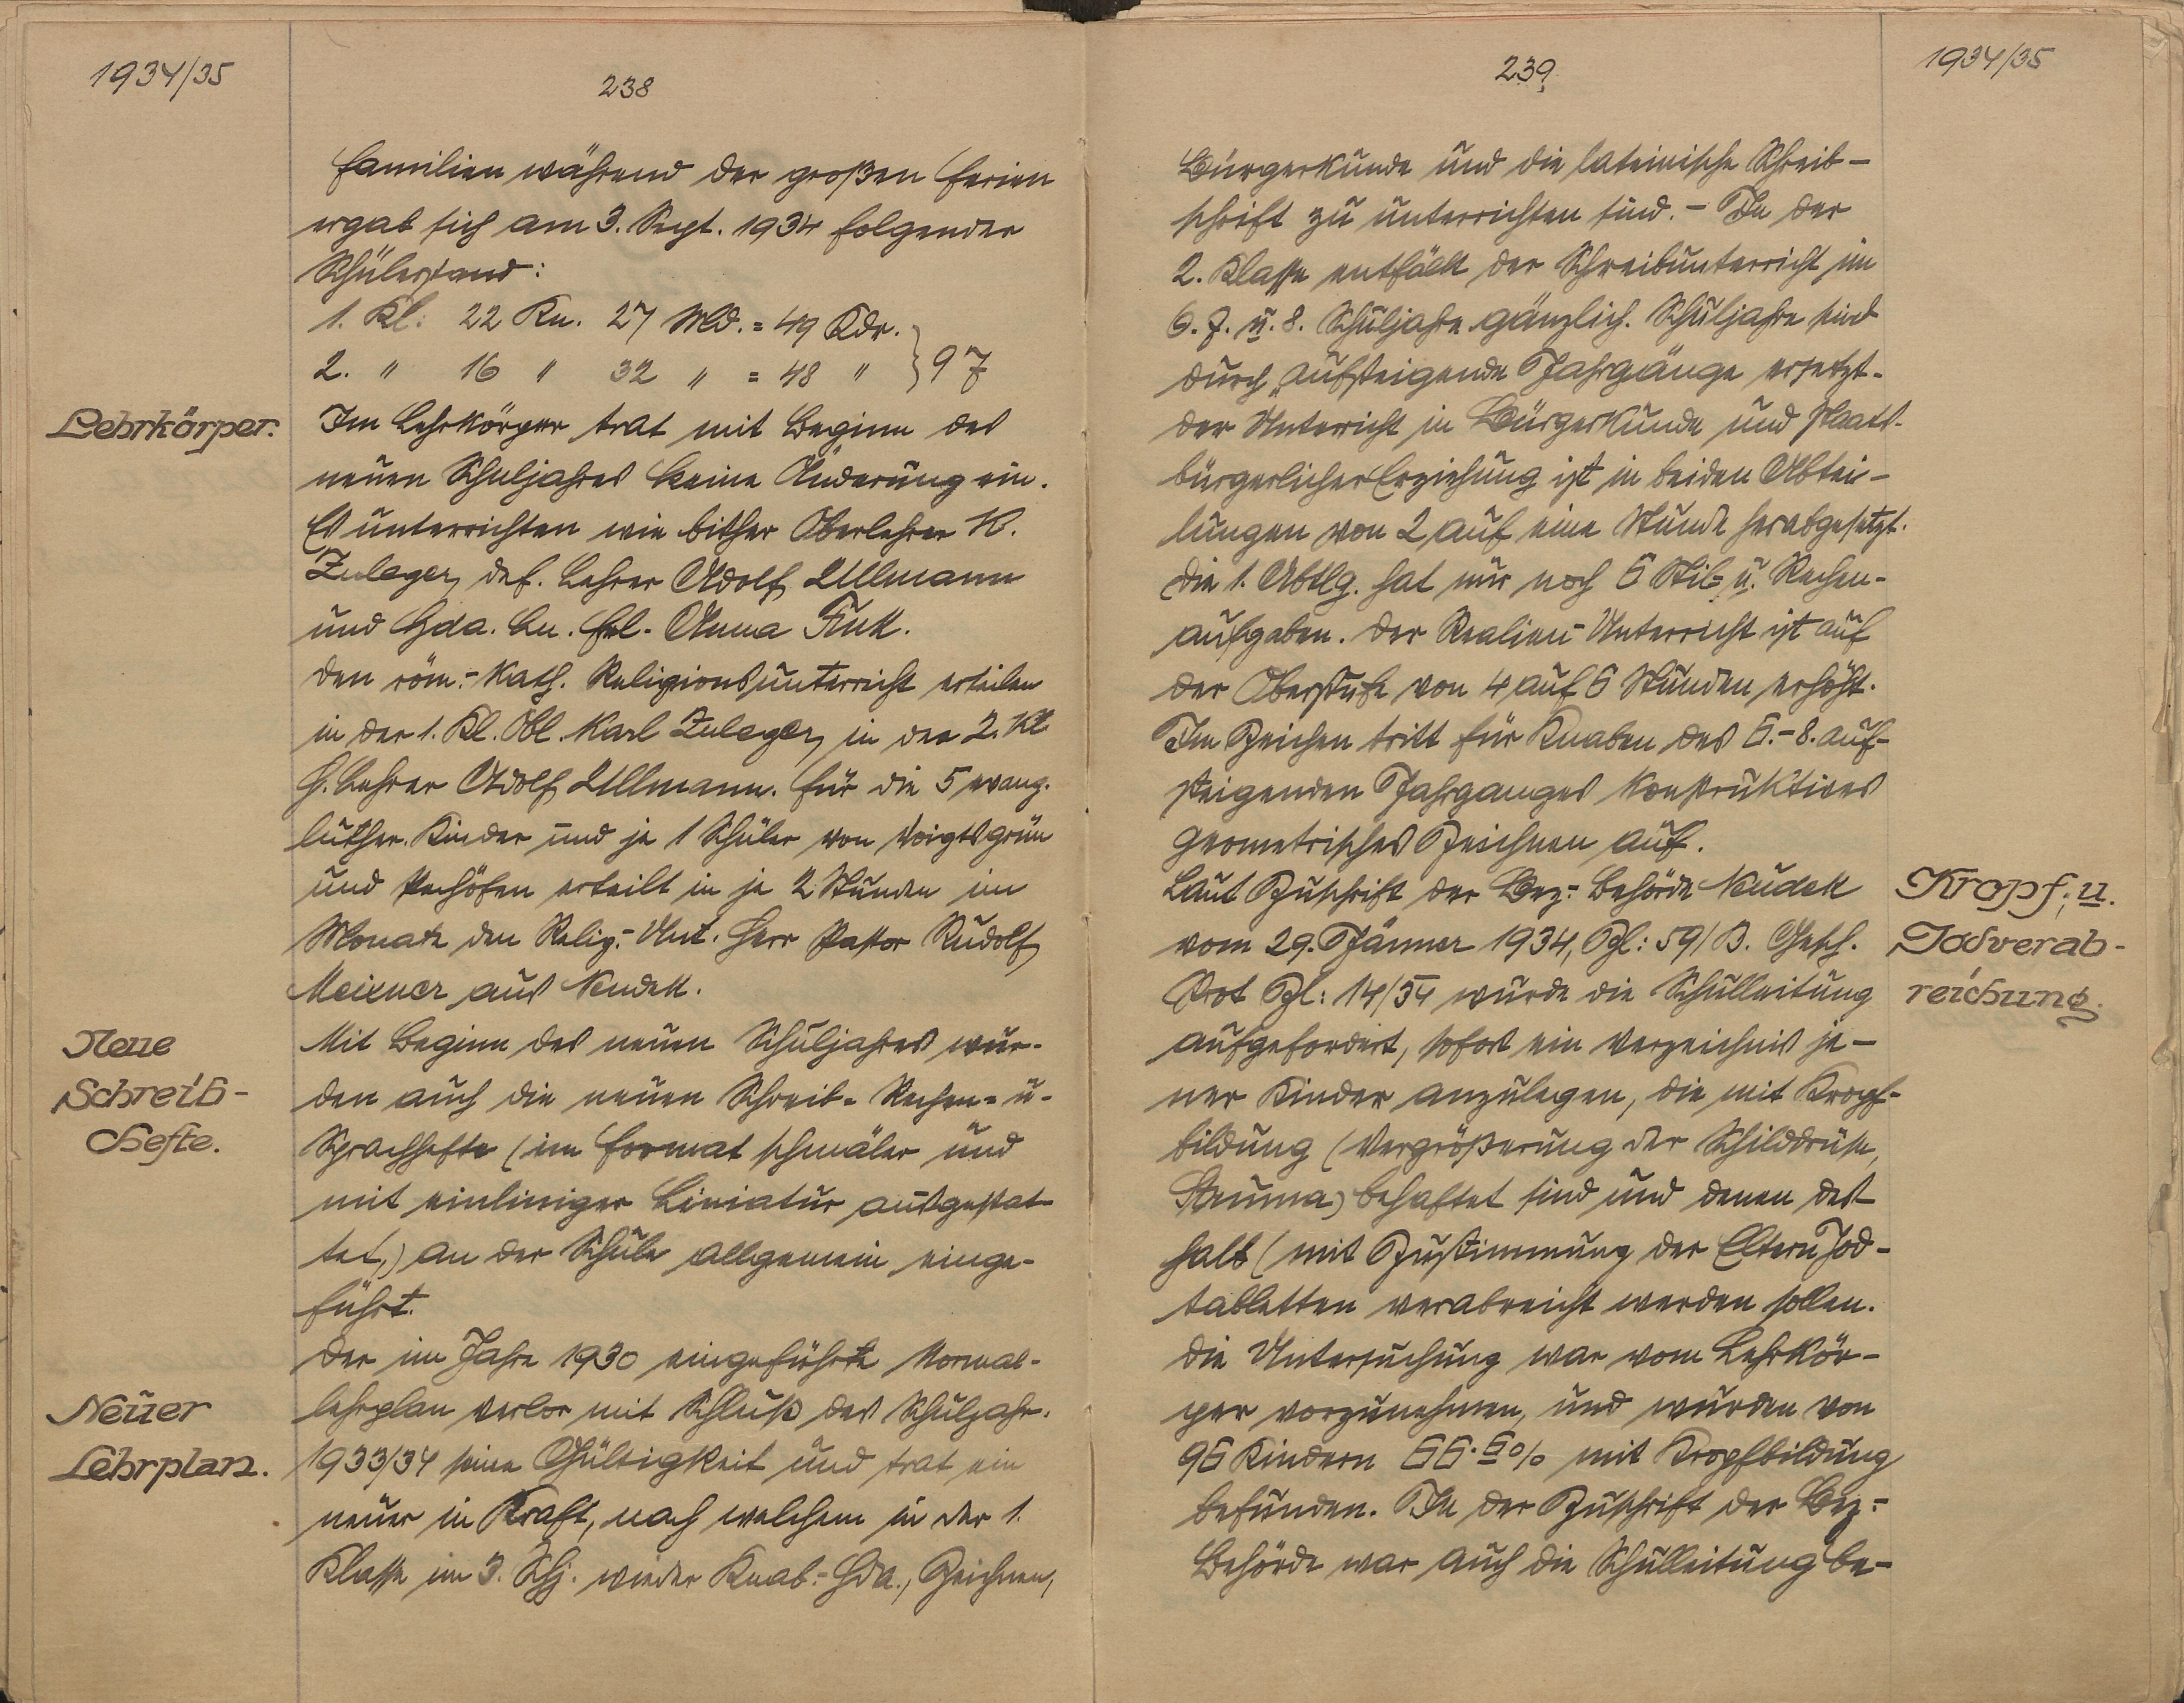 1934/35
238
Familien während der großen Ferien
ergab sich am 3. Sept. 1934 folgender
Schülerstand:
1. Kl: 22 Kn. 27 Md. = 49 Kdr.
2. " 16 " 32 " = 48 " } 97
Lehrkörper.
Im Lehrkörper trat mit Beginn des
neuen Schuljahres keine Änderung ein.
Es unterrichten wie bisher Oberlehrer K.
Zuleger, def. Lehrer Adolf Ullmann
und Hda. Ln. Frl. Anna Fink.
Den röm.-kath. Religionsunterricht erteilen
in der 1. Kl. Obl. Karl Zuleger, in der 2. Kl.
H. Lehrer Adolf Ullmann. Für die 5 evang.
luther. Kinder und je 1 Schüler von Voigtsgrün
und erteilt in je 2 Stunden im
Monate den Relig.-Unt. Herr Pastor Rudolf
Meixner aus Neudek.
Neue
Schreib-
hefte.
Mit Beginn des neuen Schuljahres wur-
den auch die neuen Schreib- Rechen- u.
Sprachhefte (im Format schmäler und
mit einliniger Liniatur ausgestat-
tet,) an der Schule allgemein einge-
führt.
Neuer
Lehrplan.
Der im Jahre 1930 eingeführte Normal-
lehrplan verlor mit Schluß des Schuljahr.
1933/34 seine Gültigkeit und trat ein
neuer in Kraft, nach welchem in der 1.
Klasse im 3. Schj. wieder Knab.-Hda., Zeichnen,
239
1934/35
Bürgerkunde und die lateinische Schreib-
schrift zu unterrichten sind. - In der
2. Klasse entfällt der Schreibunterricht im
6. 7. u. 8. Schuljahre gänzlich. Schuljahre sind
durch „aufsteigende Jahrgänge ersetzt.
Der Unterricht in Bürgerkunde und staats-
bürgerlicher Erziehung ist in beiden Abtei-
lungen von 2 auf eine Stunde herabgesetzt.
Die 1. Abtlg. hat nur noch 6 Stil- u. Rechen-
aufgaben. Der Realien-Unterricht ist auf
der Oberstufe von 4 auf 6 Stunden erhöht.
Im Zeichen tritt für Knaben des 6.-8. auf-
steigenden Jahrganges konstruktives
geometrisches Zeichnen auf.
Kropf, u.
Jodverab-
reichung.
Laut Zuschrift der Bez.-Behörde Neudek
vom 29. Jänner 1934, Zl: 59/B. Gesch.
Prot Zl: 14/34 wurde die Schulleitung
aufgefordert, sofort ein Verzeichnis je-
ner Kinder anzulegen, die mit Kropf-
bildung (Vergrößerung der Schilddrüse,
Struma) behaftet sind und denen des
halb (mit Zustimmung der Eltern Jod-
tabletten verabreicht werden sollen.
Die Untersuchung war vom Lehrkör-
per vorzunehmen, und wurden von
96 Kindern 66·6% mit Kropfbildung
befunden. In der Zuschrift der Bez.-
Behörde war auch die Schulleitung be-